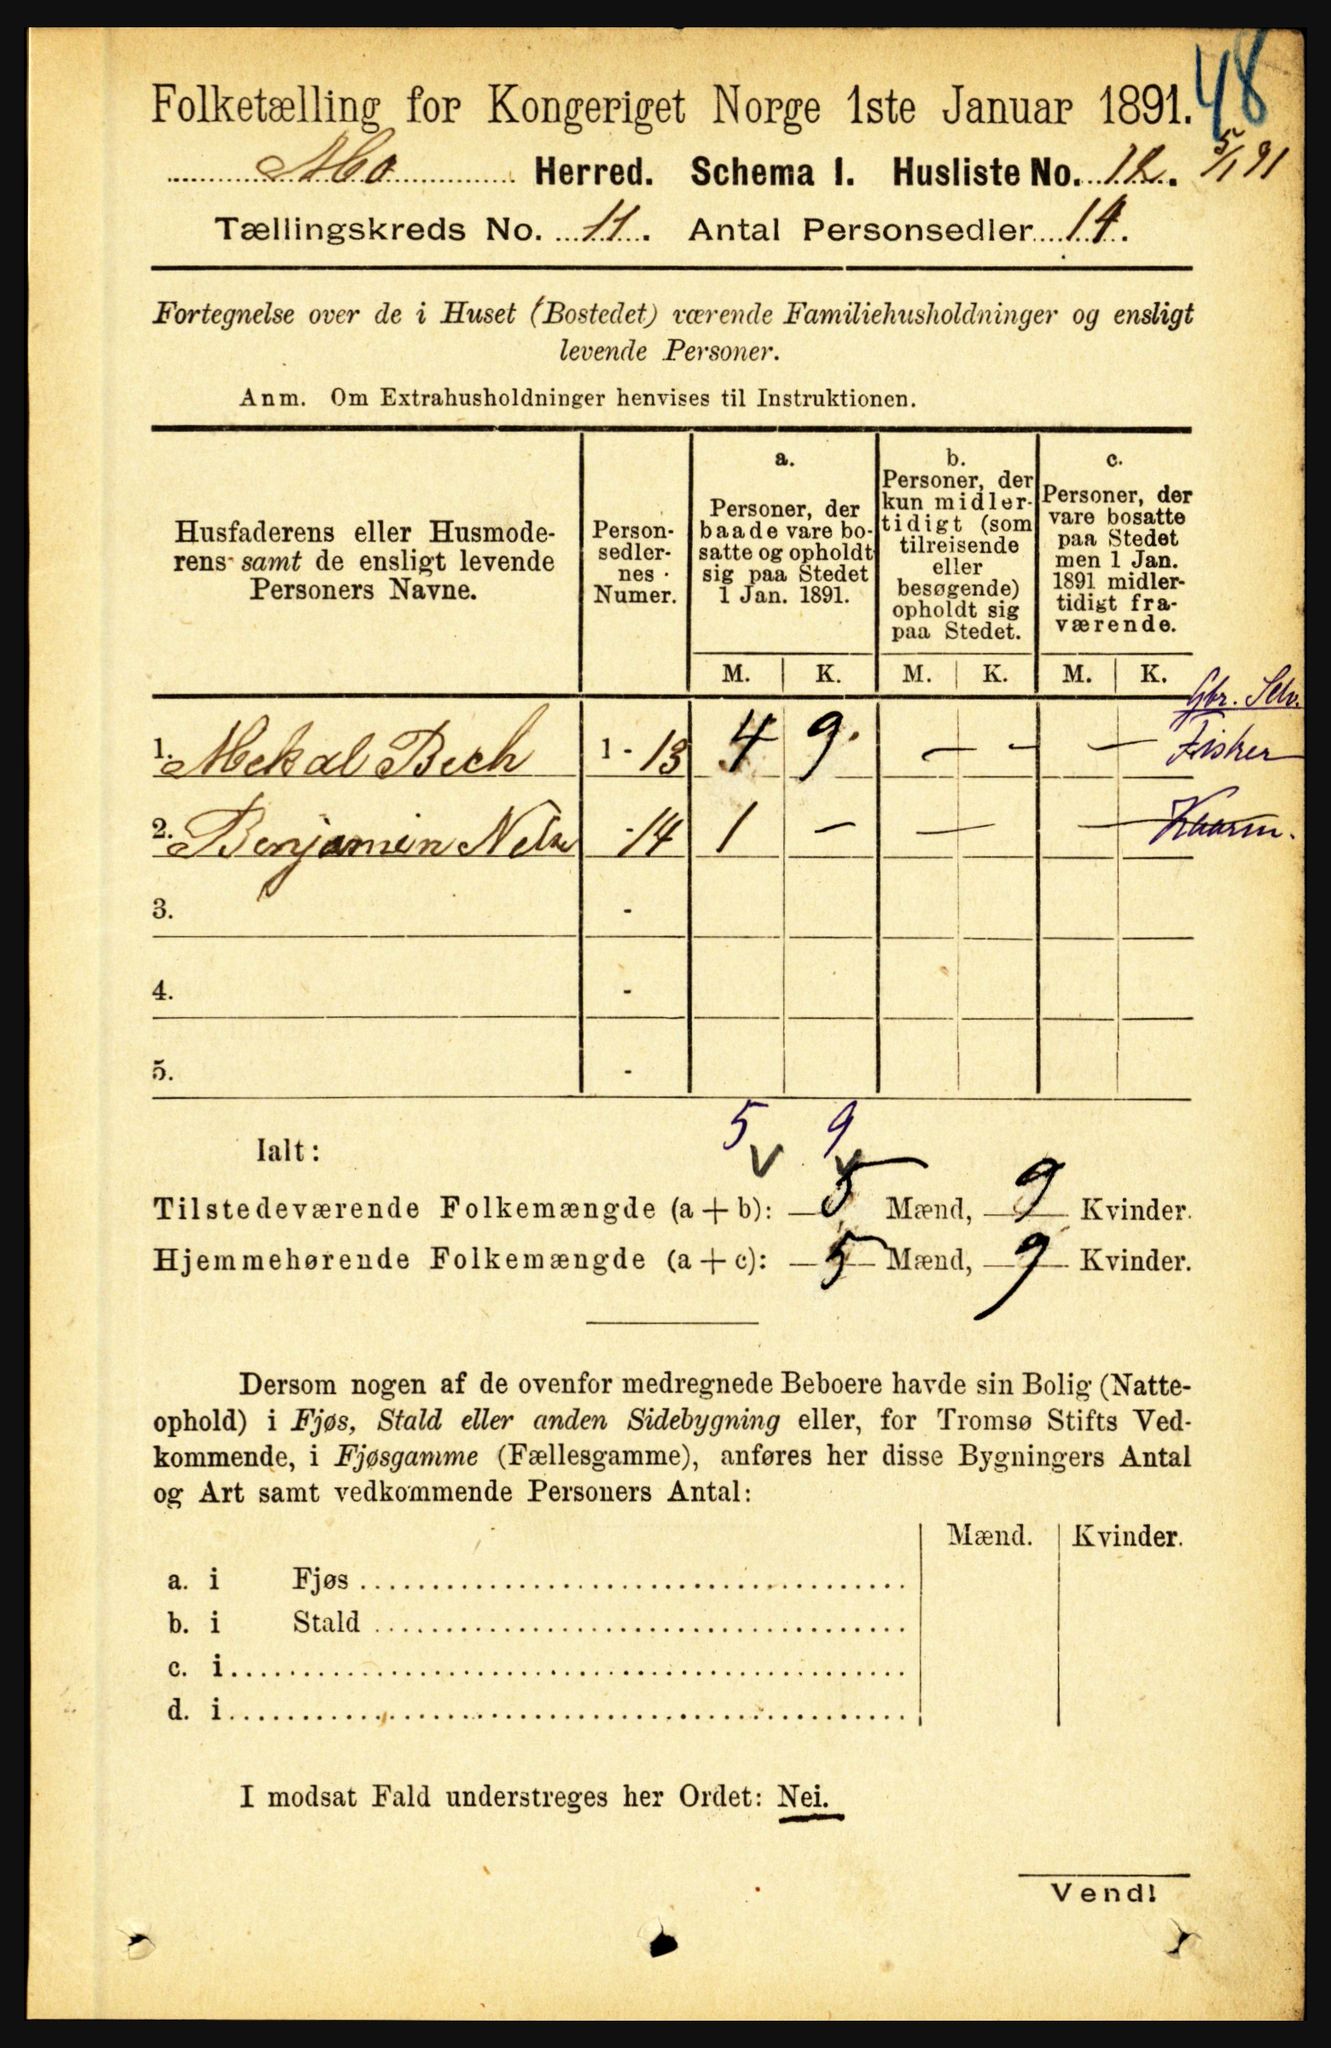 48
Folketælling for Kongeriget Norge 1ste Januar 1891.
Mo Herred. Schema I. Husliste No. 12. 5/1 91
Tællingskreds No. 11. Antal Personsedler 14.
Fortegnelse over de i Huset (Bostedet) værende Familiehusholdninger og ensligt
levende Personer.
Anm. Om Extrahusholdninger henvises til Instruktionen.
Husfaderens eller Husmode-
rens samt de ensligt levende
Personers Navne.
Person-
sedler-
nes
Numer.
a.
Personer, der
baade vare bo-
satte og opholdt
sig paa Stedet
1 Jan. 1891.
b.
Personer, der
kun midler-
tidigt (som
tilreisende
eller
besøgende)
opholdt sig
paa Stedet.
c.
Personer, der
vare bosatte
paa Stedet
men 1 Jan.
1891 midler-
tidigt fra-
værende.
M. K. M. K. M. K.
Gbr. Selv.
1. Mekal Bech 1 - 13 4 9. — - — Fisker
2. Benjamin Nels - 14 1 — — —
3. -
4. -
5. -
5 9
Ialt:
Tilstedeværende Folkemængde (a + b): 5 Mænd, 9 Kvinder.
Hjemmehørende Folkemængde (a + c): 5 Mænd, 9 Kvinder.
Dersom nogen af de ovenfor medregnede Beboere havde sin Bolig (Natte-
ophold) i Fjøs, Stald eller anden Sidebygning eller, for Tromsø Stifts Ved-
kommende, i Fjøsgamme (Fællesgamme), anføres her disse Bygningers Antal
og Art samt vedkommende Personers Antal:
Mænd. Kvinder.
a. i Fjøs
b. i Stald
c. i
d. i
I modsat Fald understreges her Ordet: Nei.
Vend!